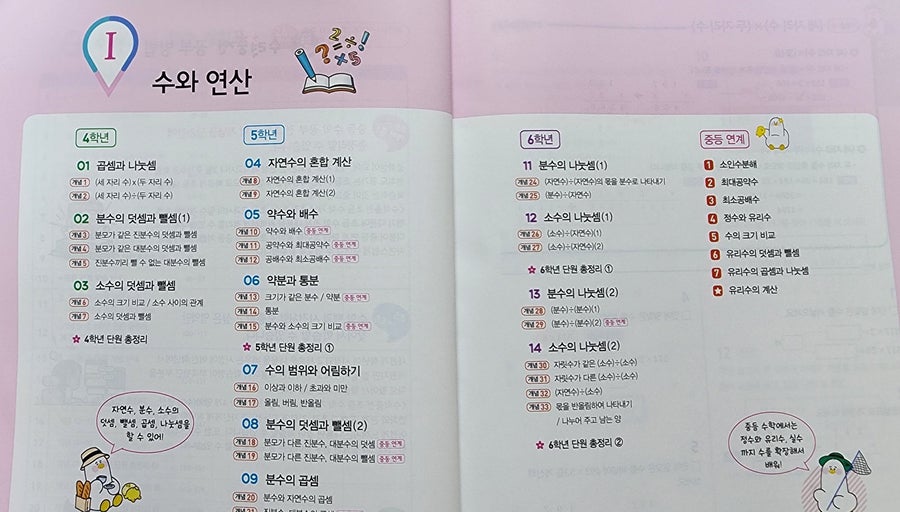 I
수와 연산
4학년
01 곱셈과 나눗셈
개념 1 (세 자리 수)×(두 자리 수)
개념 2 (세 자리 수)÷(두 자리 수)
02 분수의 덧셈과 뺄셈(1)
개념 3 분모가 같은 진분수의 덧셈과 뺄셈
개념 4 분모가 같은 대분수의 덧셈과 뺄셈
개념 5 진분수끼리 뺄 수 없는 대분수의 뺄셈
03 소수의 덧셈과 뺄셈
개념 6 소수의 크기 비교 / 소수 사이의 관계
개념 7 소수의 덧셈과 뺄셈
4학년 단원 총정리
자연수, 분수, 소수의
덧셈, 뺄셈, 곱셈, 나눗셈을
할 수 있어!
5학년
04 자연수의 혼합 계산
개념 8 자연수의 혼합 계산(1)
개념 9 자연수의 혼합 계산(2)
05 약수와 배수
개념 10 약수와 배수 중등 연계
개념 11 공약수와 최대공약수 중등 연계
개념 12 공배수와 최소공배수 중등 연계
06 약분과 통분
개념 13 크기가 같은 분수 / 약분 중등 연계
개념 14 통분
개념 15 분수와 소수의 크기 비교 중등 연계
5학년 단원 총정리 ①
07 수의 범위와 어림하기
개념 16 이상과 이하 / 초과와 미만
개념 17 올림, 버림, 반올림
08 분수의 덧셈과 뺄셈(2)
개념 18 분모가 다른 진분수, 대분수의 덧셈 중등 연계
개념 19 분모가 다른 진분수, 대분수의 뺄셈 중등 연계
09 분수의 곱셈
개념 20 분수와 자연수의 곱셈
6학년
11 분수의 나눗셈(1)
개념 24 (자연수)÷(자연수)의 몫을 분수로 나타내기
개념 25 (분수)÷(자연수)
12 소수의 나눗셈(1)
개념 26 (소수)÷(자연수)(1)
개념 27 (소수)÷(자연수)(2)
6학년 단원 총정리 ①
13 분수의 나눗셈(2)
개념 28 (분수)÷(분수)(1)
개념 29 (분수)÷(분수)(2) 중등 연계
14 소수의 나눗셈(2)
개념 30 자릿수가 같은 (소수)÷(소수)
개념 31 자릿수가 다른 (소수)÷(소수)
개념 32 (자연수)÷(소수)
개념 33 몫을 반올림하여 나타내기
/ 나누어 주고 남는 양
6학년 단원 총정리 ②
중등 연계
1 소인수분해
2 최대공약수
3 최소공배수
4 정수와 유리수
5 수의 크기 비교
6 유리수의 덧셈과 뺄셈
7 유리수의 곱셈과 나눗셈
유리수의 계산
중등 수학에서는
정수와 유리수, 실수
까지 수를 확장해서
배워!